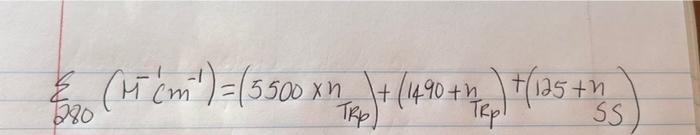 Σ280 (M⁻¹cm⁻¹) = (5500 × nTRp) + (1490 + nTRp) + (125 + nSS)